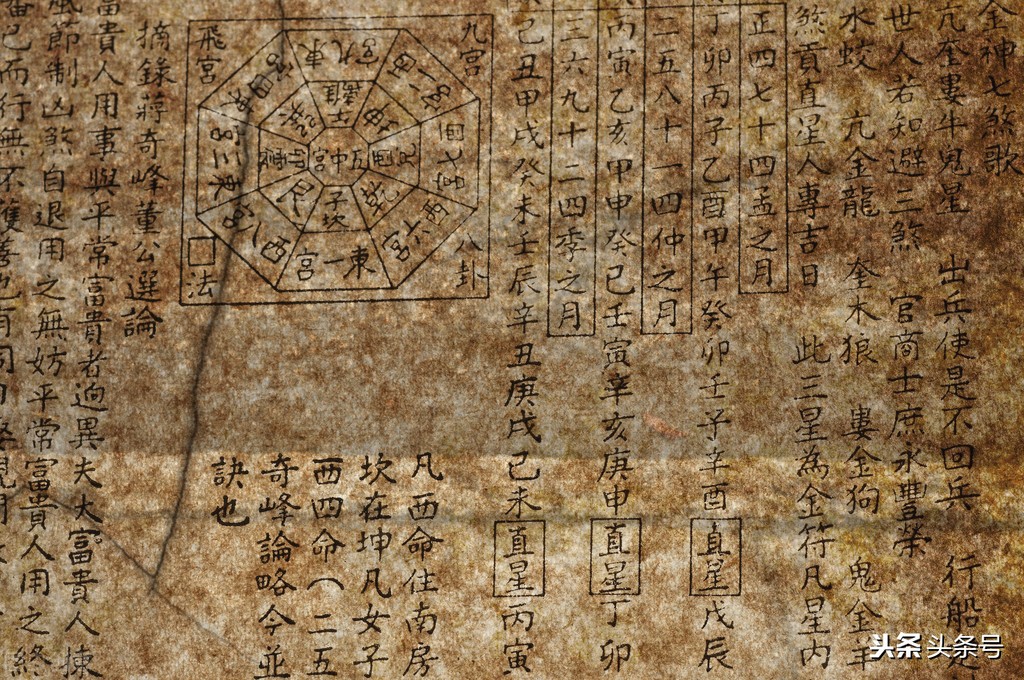 金神七煞歌
亢奎婁牛鬼星 出兵使是不回兵 行船
世人若知避三煞 官商士庶永豐榮
水蛟 亢金龍 奎木狼 婁金狗 鬼金羊
煞貢直星人專吉日 此三星為金符凡星內
正四七十四孟之月
丁卯丙子乙酉甲午癸卯壬子辛酉直星戊辰
二五八十一四仲之月
丙寅乙亥甲申癸巳壬寅辛亥庚申直星丁卯
三六九十二四季之月
己丑甲戌癸未壬辰辛丑庚戌己未直星丙寅
九宮
八卦
中宮
子坎
東一宮
西六宮
乾
飛宮
□法
凡西命住南房
坎在坤凡女子
西四命(二五
奇峰論略今並
訣也
摘錄蔣奇峰董公選論
富貴人用事與平常富貴者迥異夫大富貴人揀
節制凶煞自退用之無妨平常富貴人用之終
已而行無不獲善也有同日
头条 头条号